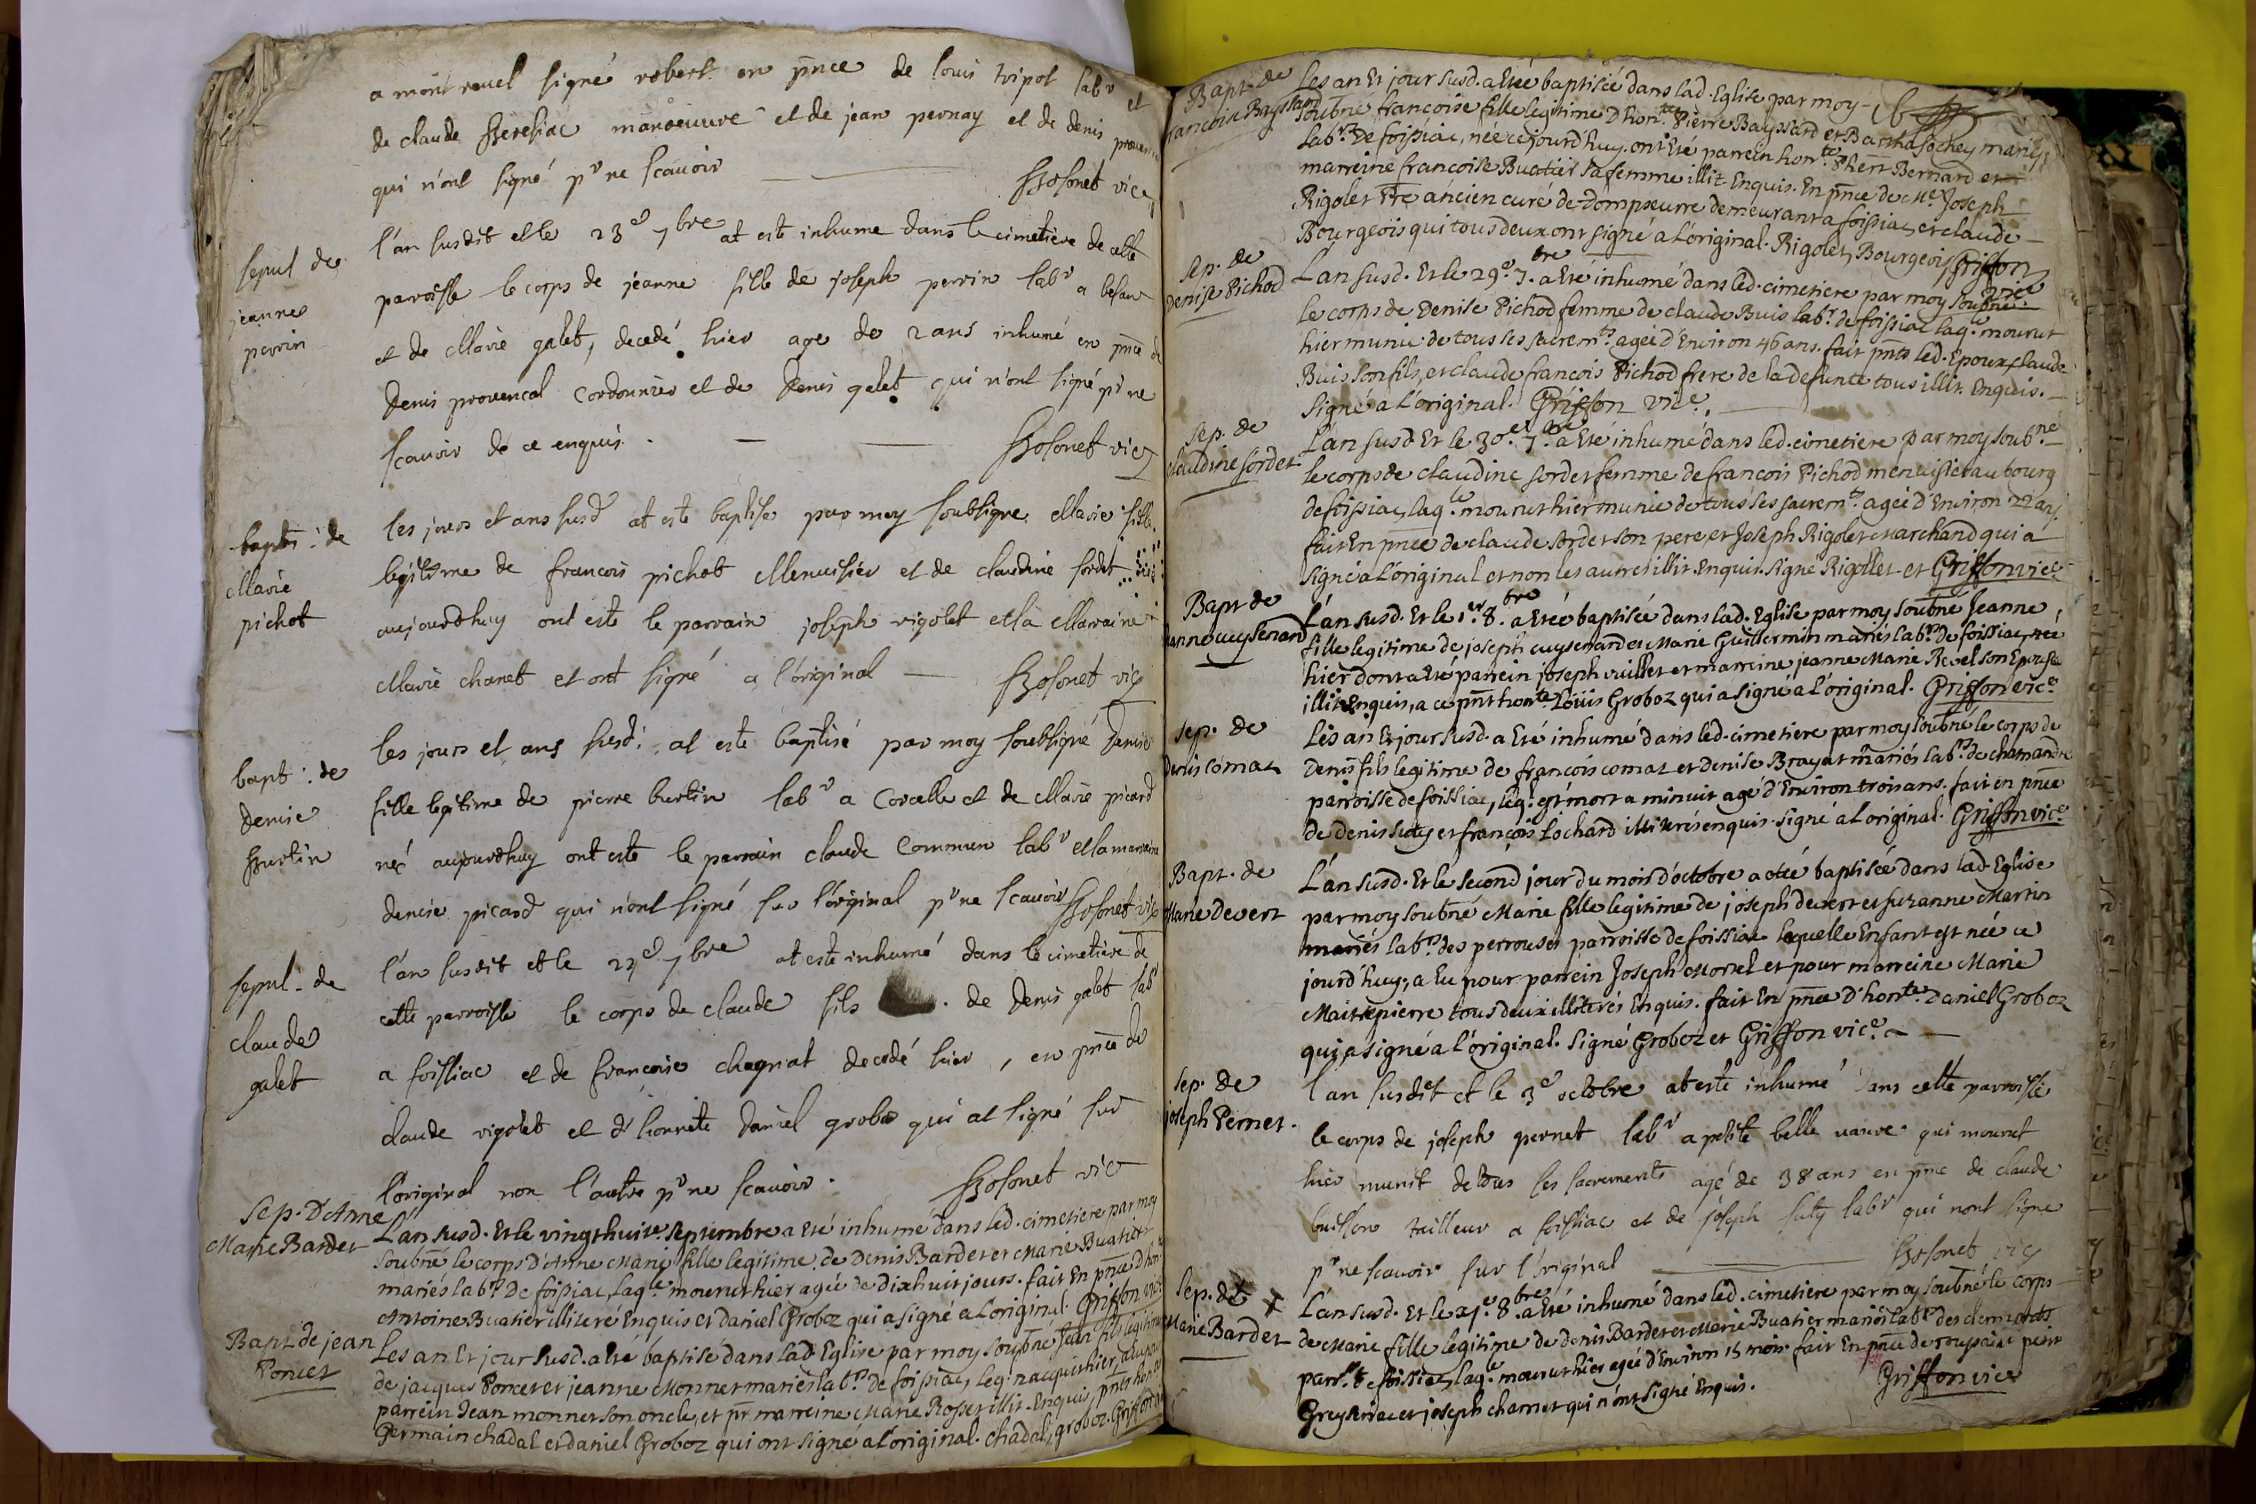 a montrevel signé robert en pnce de louis tripot labr et
de claude manoeuvre et de jean pernay et de denis
qui n'ont signé pr ne scavoir vic
sepul de
jeanne
perrin
l'an susdit et le 23e 7bre at esté inhume dans le cimetiere de cette
paroisse le corps de jeanne fille de joseph perrin labr a
et de Marie galet, decedé hier age de 2 ans inhumé en pnce de
denis provencal cordonnier et de denis galet qui n'ont signé pr ne
scavoir de ce enquis. vic
bapt: de
Marie
pichot
les jours et ans susd at esté baptise par moy soubsigne Marie fille
legitime de francois pichot Menuisier et de claudine sordet
aujourdhuy ont esté le parrain joseph rigolet et la Marraine
Marie chanet et ont signé a l'original vic
bapt: de
denise
burtin
les jours et ans susd: at esté baptisé par moy soubsigné denise
fille legitime de pierre burtin labr a Corcelle et de Marie picard
neé aujourdhuy ont esté le parrain claude Commun labr et la marraine
denise picard qui n'ont signé sur l'original pr ne scavoir vic
sepul. de
claude
galet
l'an susdit et le 7bre at esté inhumé dans le cimetiere de
cette parroisse le corps de claude fils de denis galet labr
a foissiac et de francoise chagnat decedé hier, en pnce de
claude rigolet et d'honnete daniel groboz qui at signé sur
l'original non l'autre pr ne scavoir. vic
Sep. D'Anne
Marie Bardet
L'an susd. Et le vingthuite Septembre a Eté inhumé dans led. cimetiere par moy
Soubné le corps d'Anne Marie fille legitime de Denis Bardet et Marie Buatier
mariés labrs De foissiac, laqle mourut hier agée de dixhuit jours. fait En pnce D'honte
Antoine Buatier illiteré Enquis et daniel Groboz qui a signé a L'original. Griffon vice
Bapt. de jean
Poncet
Les an Et jour susd. a Eté baptisé dans lad. Eglise par moy Soubné Jean fils legitime
de jacques Poncet et jeanne Monnet mariés labrs. de foissiac, leq. naquit hier,
parrein Jean monnet son oncle, et pr marreine Marie Rosset illit. Enquis, pnts
Germain chadal et daniel Groboz qui ont signé a l'original. Chadal, groboz. Griffon
Bapt. de
francoise Bayssard
Les an Et jour susd. a Eteé baptisée dans lad. Eglise par moy
Soubné francoise fille legitime D'honte. Pierre Bayssard et Bartha Jochey mariés
labrs De foissiac, née ce jourd'huy. ont Eté parrein honte Phert Bernard et
marreine francoise Buatier sa femme illit Enquis. En pnce de Me Joseph
Rigolet Ptre ancien curé de dompseurre demeurant a foissiac, et claude
Bourgeois qui tous deux ont signé a L'original. Rigolet, Bourgeois, Griffon vice
Sep. de
Denise Pichod
L'an susd. Et le 29e. 7.bre a Eté inhumé dans led. cimetiere par moy Soubné
le corps de Denise Pichod femme de claude Buis labr. de foissiac laqle mourut
hier munie de tous les sacremts. ageé d'Environ 46 ans. fait pnts led. Epoux, claude
Buis son fils, et claude francois Pichod frere de la defunte tous illit. Enquis.
Signé a L'original. Griffon vice.
Sep. de
Claudine Sordet
L'an susd. Et le 30e. 7.bre a Eté inhumé dans led. cimetiere par moy soubné
le corps de claudine sordet femme de francois Pichod menuisier au bourg
de foissiac, laqle mourut hier munie de tous ses sacremts ageé d'Environ 22 ans.
fait En pnce de claude sordet son pere, et Joseph Rigolet Marchand qui a
signé a L'original et non les autres illit. Enquis. Signé Rigollet et Griffon vice
Bapt de
Jeanne cuysenard
L'an susd. Et le 1er. 8.bre a Eteé baptisée dans lad. Eglise par moy soubné Jeanne
fille legitime de joseph cuysenard et Marie Guillermin mariés labrs De foissiac, neé
hier dont a Eté parrein joseph vuillet et marreine jeanne Marie Revel son Epouse
illit Enquis, a ce pnt honte Louis Groboz qui a signé a L'original. Griffon vice
Sep. de
Denis Comat
Les an Et jour susd. a Eté inhumé dans led. cimetiere par moy soubné le corps de
Denis fils legitime de francois comat et denise Brayat mariés labrs de chamandre
parroisse de foissiac, leq. est mort a minuit agé d'Environ trois ans. fait en pnce
de denis suty et francois Lochard illiterés enquis. signé a L'original. Griffon vice
Bapt. de
Marie Devert
L'an susd. Et le second jour du mois d'octobre a eteé baptisée dans lad. Eglise
par moy soubné Marie fille legitime de joseph devert et suzanne Martin
mariés labrs des perrouses parroisse de foissiac laquelle Enfant est née ce
jourd'huy, a Eu pour parrein Joseph Morel et pour marreine Marie
Maitrepierre tous deux illiterés Enquis. fait En pnce D'honte. Daniel Groboz
qui a signé a l'original. Signé Groboz et Griffon vice
Sep. de
joseph Pernet.
l'an susdit et le 3e octobre at esté inhumé dans cette parroisse
le corps de joseph pernet labr a petite belle vavre qui mourut
hier munit de tous les sacrements agé de 38 ans en pnce de claude
buisson tailleur a foissiac et de joseph suty labr qui n'ont signe
pr ne scavoir sur l'original vic
Sep. de +
Marie Bardet
L'an susd. Et le 8.bre a Eté inhumé dans led. cimetiere par moy soubné le corps
de Marie fille legitime de denis Bardet et Marie Buatier mariés labrs des clemonts
parse. de foissiac, laqle mourut hier agée d'Environ 15 mois. fait En pnce de Toussaint petit
et joseph charnet qui n'ont signé Enquis. Griffon vice